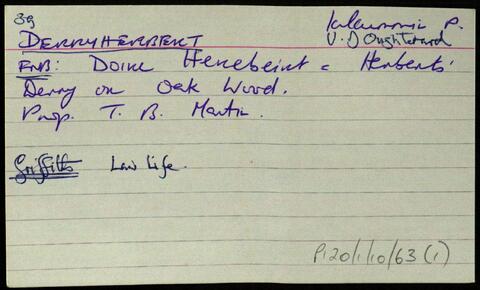 39
Kilcummin P.
DERRYHERBERT
U.D Oughterard
FNB: Doire Herebeirt = Herberts'
Derry or Oak Wood.
Prop. T. B. Martin.
Griffiths Law Life.
P120/1/10/63 (1)